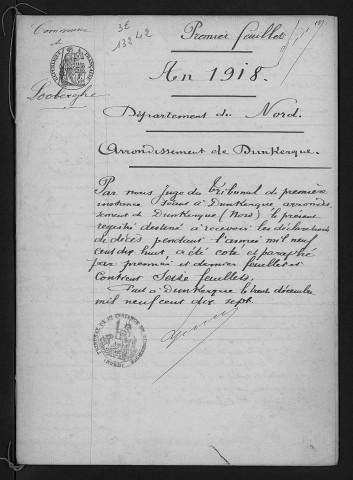 Commune
de
Looberghe
3E
13242
Premier feuillet
An 1918.
Département du Nord.
Arrondissement de Dunkerque.
Par nous Juge du Tribunal de première
instance séant à Dunkerque, arrondis
sement de Dunkerque (Nord) le présent
registre destiné à recevoir les déclarations
de décès pendant l'année mil neuf
cent dix huit, a été coté et paraphé
par premier et dernier feuillet et
contient seize feuillets.
Fait à Dunkerque le trente décembre
mil neuf cent dix sept.